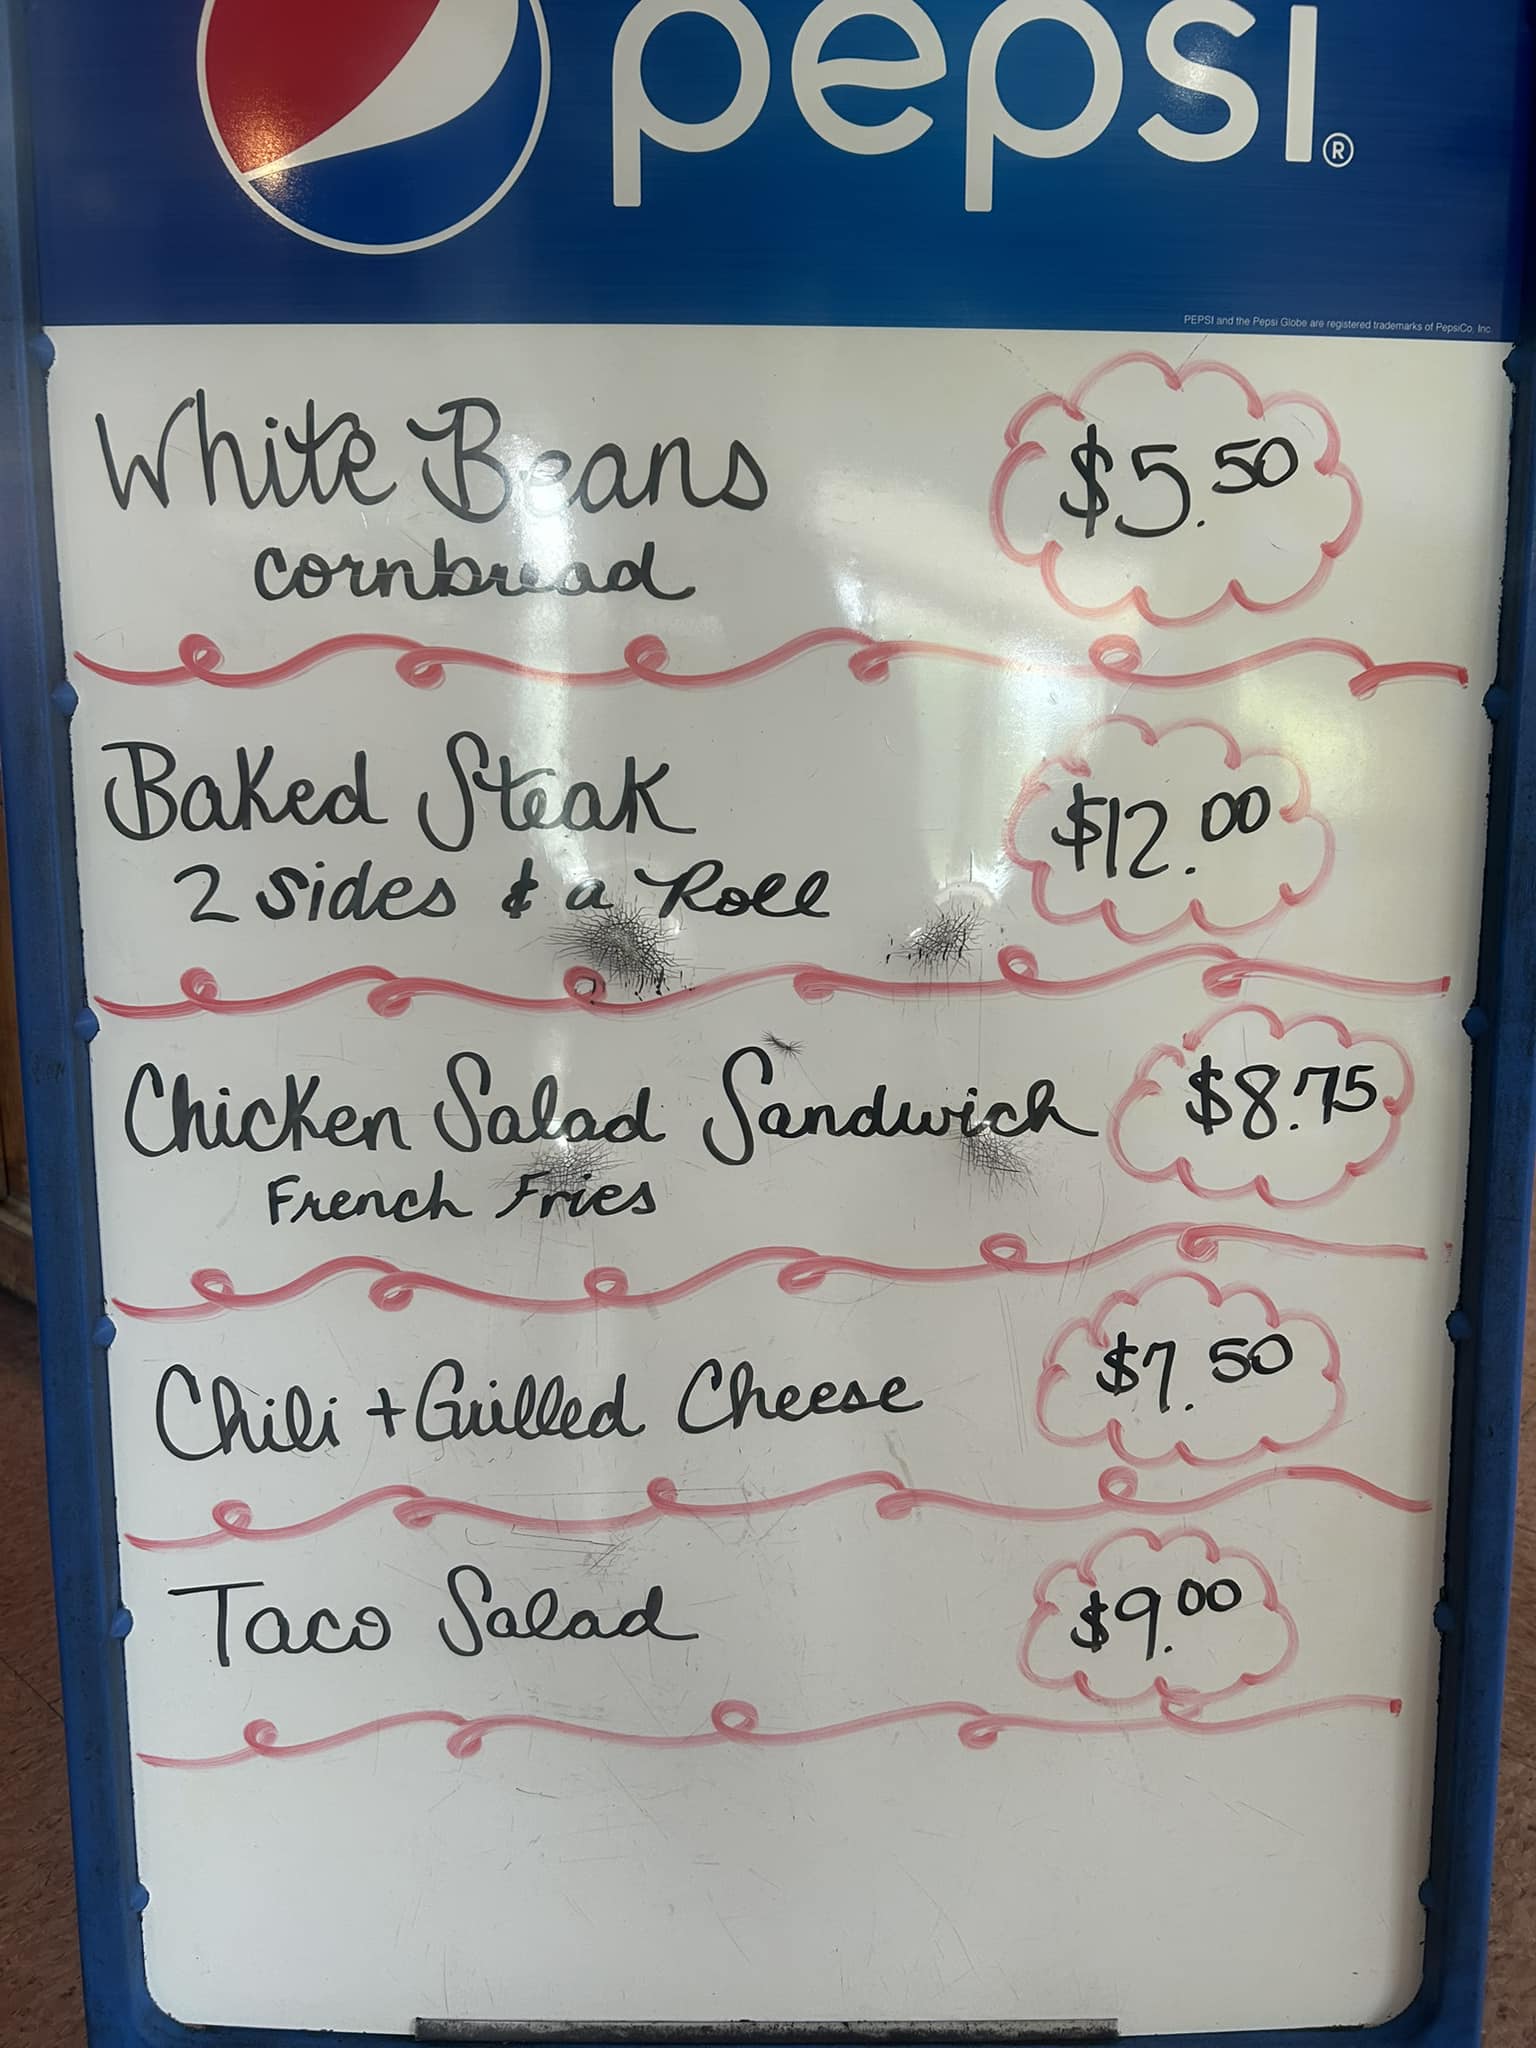 pepsi®
PEPSI and the Pepsi Globe are registered trademarks of PepsiCo, Inc.
White Beans $5.50
cornbread
Baked Steak $12.00
2 sides & a Roll
Chicken Salad Sandwich $8.75
French Fries
Chili + Grilled Cheese $7.50
Taco Salad $9.00